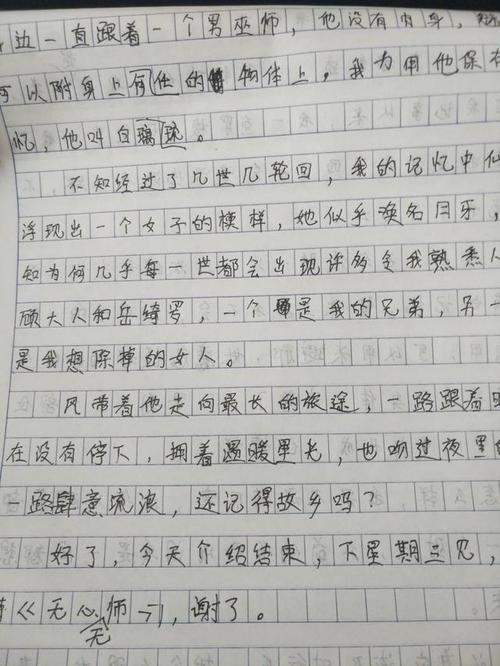 边一直跟着一个男巫师，他没有肉身，
可以附身上任何的物体上，我力用他保存
忆，他叫白琉璃。
不知经过了几世几轮回，我的记忆中似
浮现出一个女子的模样，她似乎唤名月牙，
知为何几乎每一世都会出现许多令我熟悉人
顾大人和岳绮罗，一个是我的兄弟，另一
是我想除掉的女人。
风带着他走向最长的旅途，一路跟着
在没有停下，拥着遇暖星光，也吻过夜里的
一路肆意流浪，还记得故乡吗？
好了，今天介绍结束，下星期三见，
《无心师》，谢了。
无